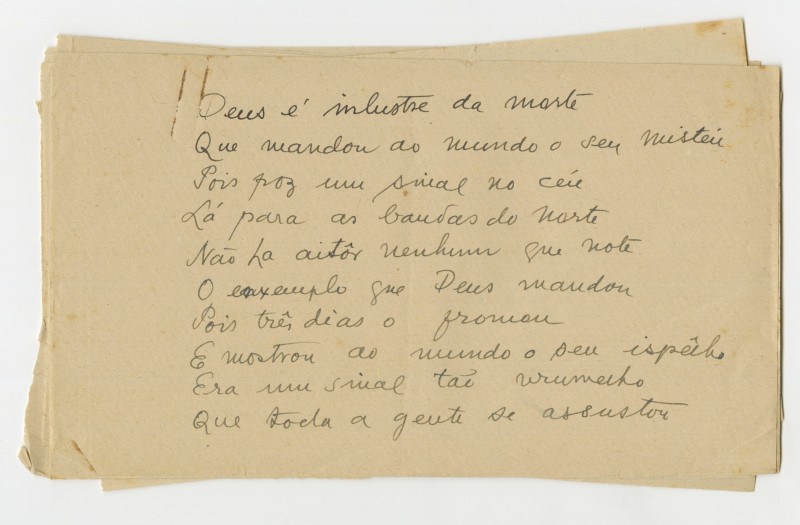 Deus é inlustre da morte
Que mandou ao mundo o seu misteir
Pois poz um sinal no céu
Lá para as bandas do Norte
Não ha aitôr nenhum que note
O exemplo que Deus mandou
Pois três dias o fromou
E mostrou ao mundo o seu ispêlho
Era um sinal tão vrumelho
Que toda a gente se assustou